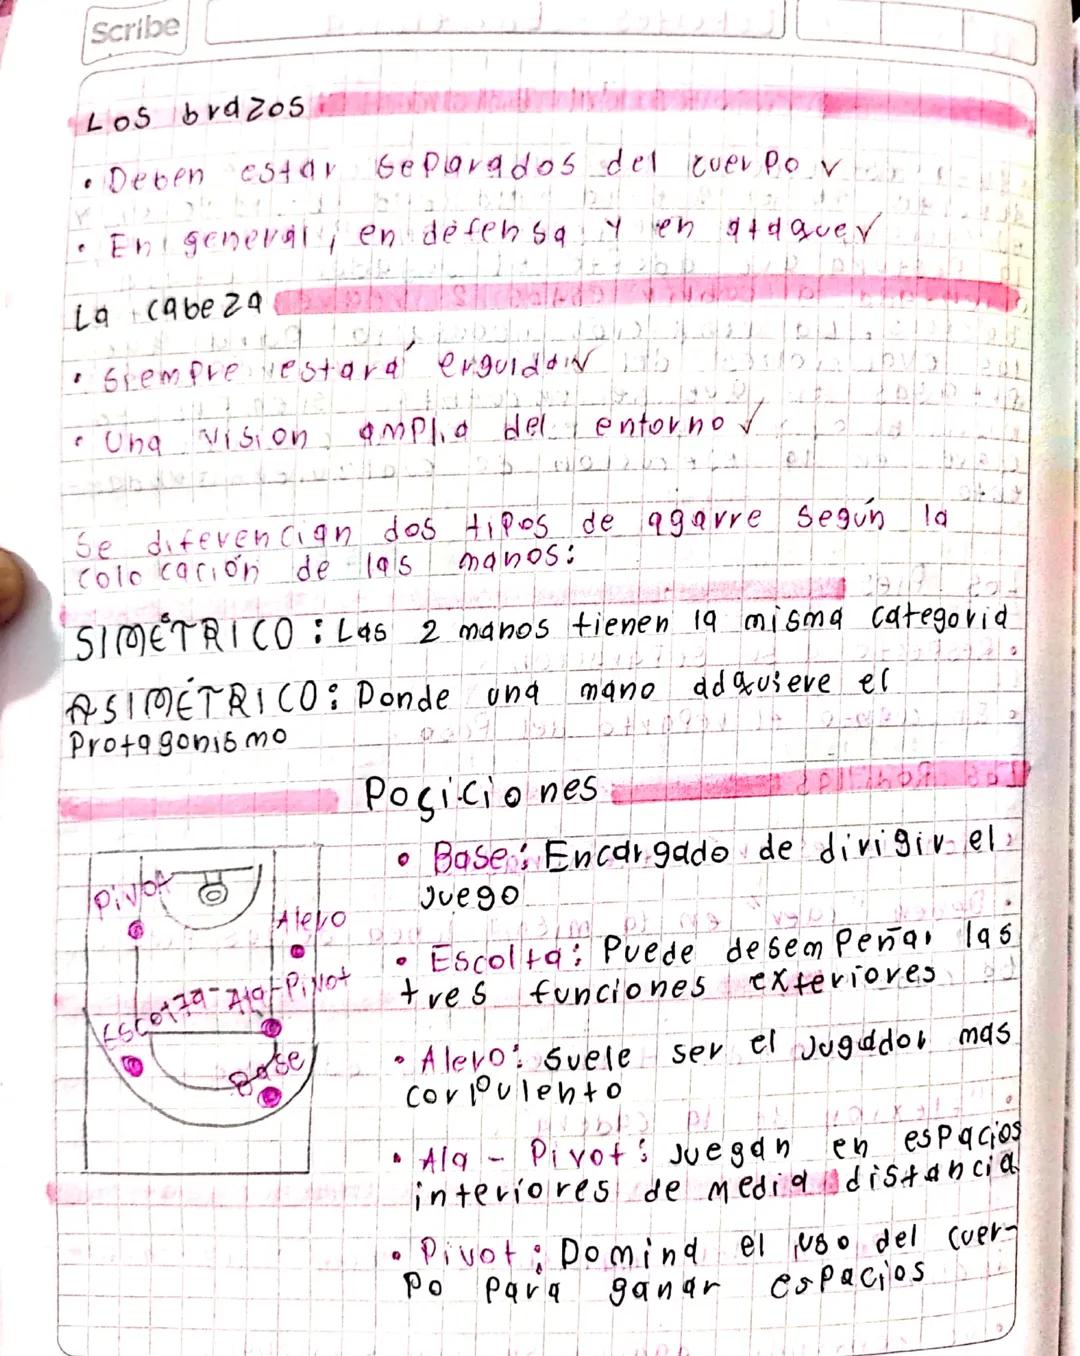 Scribe
Los brazos
• Deben estar separados del cuerpo ✓
• En general, en defensa y en ataque ✓
La cabeza
• Siempre estará erguida ✓
• Una visión amplia del entorno ✓
Se diferencian dos tipos de agarre según la
colocación de las manos:
SIMÉTRICO: Las 2 manos tienen la misma categoria
ASIMÉTRICO: Donde una mano adquiere el
Protagonismo
Posiciones
• Base: Encargado de dirigir el
Juego
• Escolta: Puede desempeñar las
tres funciones exteriores
• Alero: Suele ser el Jugador mas
corpulento
• Ala - Pivot: Juegan en espacios
interiores de media distancia
• Pivot: Domina el uso del cuer-
po para ganar espacios
Pivot
Alero
Escolta
Ala-Pivot
Base